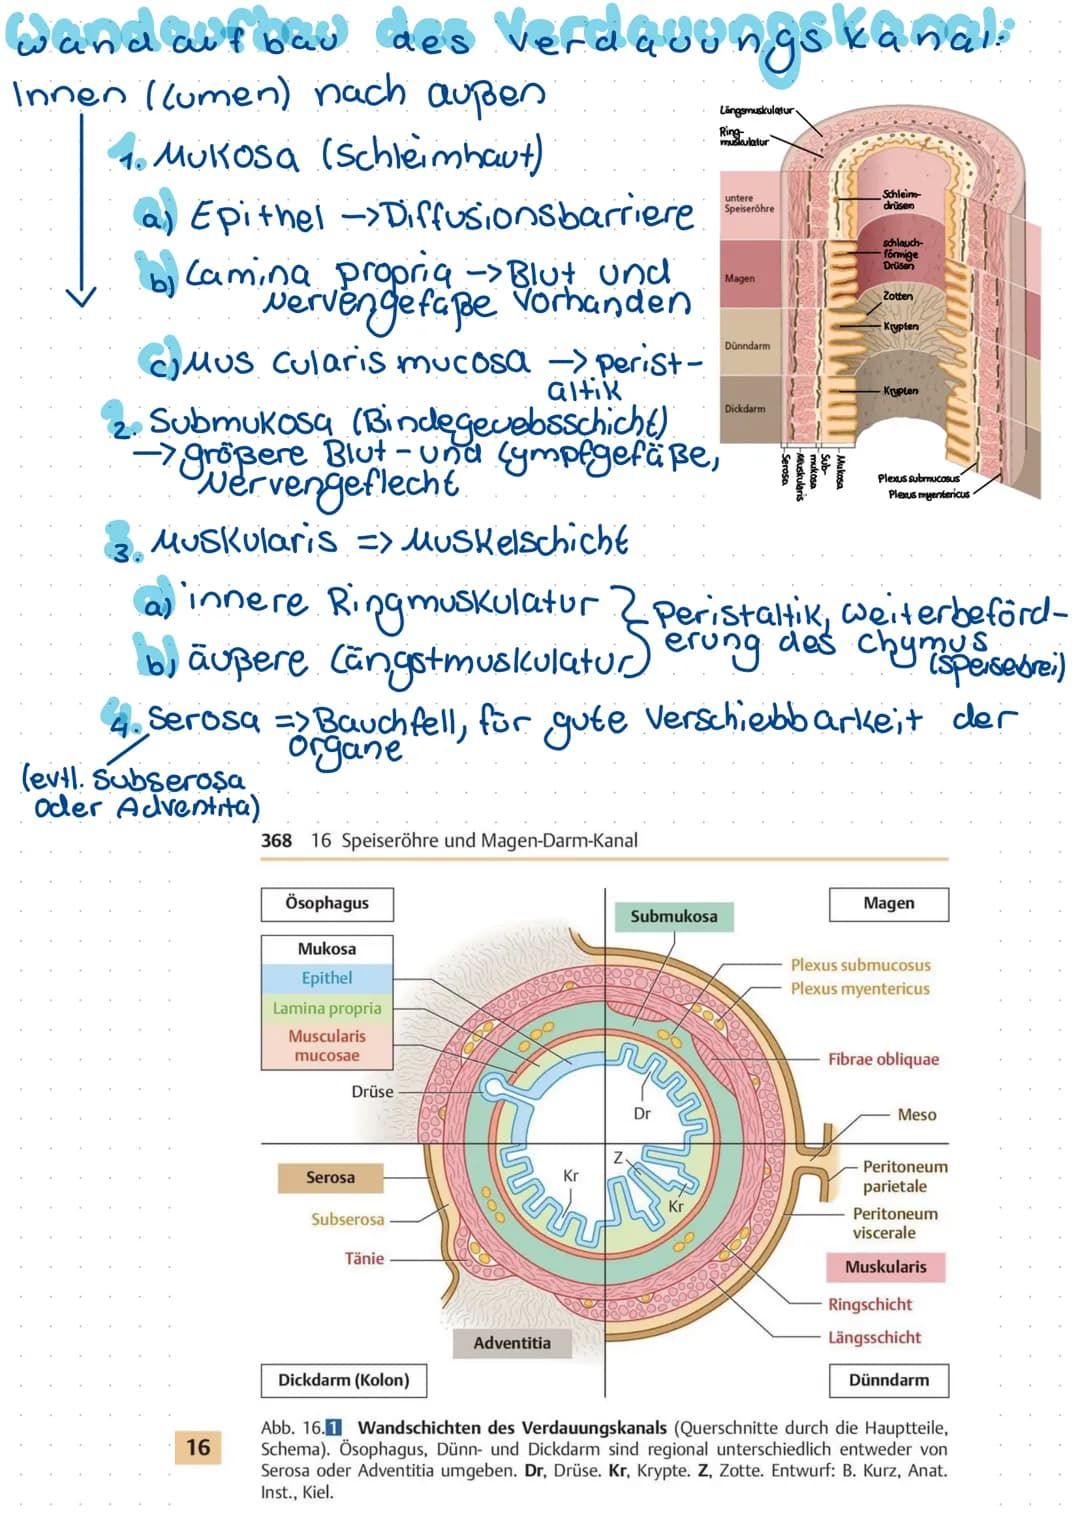 Wandaufbau des Verdauungskanal:
Innen (Lumen) nach außen
1. Mukosa (Schleimhaut)
a) Epithel -> Diffusionsbarriere
b) Lamina propria -> Blut und
Nervengefäße vorhanden
c) Muscularis mucosa -> perist-
altik
2. Submukosa (Bindegewebsschicht)
-> größere Blut- und Lympfgefäße,
Nervengeflecht
3. Muskularis => Muskelschicht
a) innere Ringmuskulatur
b) äußere Längstmuskulatur
Peristaltik, Weiterbeförd-
erung des Chymus
(Speisebrei)
4. Serosa => Bauchfell, für gute Verschiebbarkeit der
Organe
(evtl. Subserosa
oder Adventita)
Längsmuskulatur
Ring-
muskulatur
untere
Speiseröhre
Magen
Dünndarm
Dickdarm
Schleim-
drüsen
schlauch-
förmige
Drüsen
Zotten
Krypten
Krypten
Serosa
Muskularis
Sub-
mukosa
Mukosa
Plexus submucosus
Plexus myentericus
368 16 Speiseröhre und Magen-Darm-Kanal
Ösophagus
Magen
Submukosa
Mukosa
Epithel
Lamina propria
Muscularis
mucosae
Drüse
Plexus submucosus
Plexus myentericus
Fibrae obliquae
Dr
Meso
Z
Kr
Kr
Serosa
Subserosa
Tänie
Peritoneum
parietale
Peritoneum
viscerale
Muskularis
Ringschicht
Längsschicht
Adventitia
Dickdarm (Kolon)
Dünndarm
16
Abb. 16.1 Wandschichten des Verdauungskanals (Querschnitte durch die Hauptteile,
Schema). Ösophagus, Dünn- und Dickdarm sind regional unterschiedlich entweder von
Serosa oder Adventitia umgeben. Dr, Drüse. Kr, Krypte. Z, Zotte. Entwurf: B. Kurz, Anat.
Inst., Kiel.